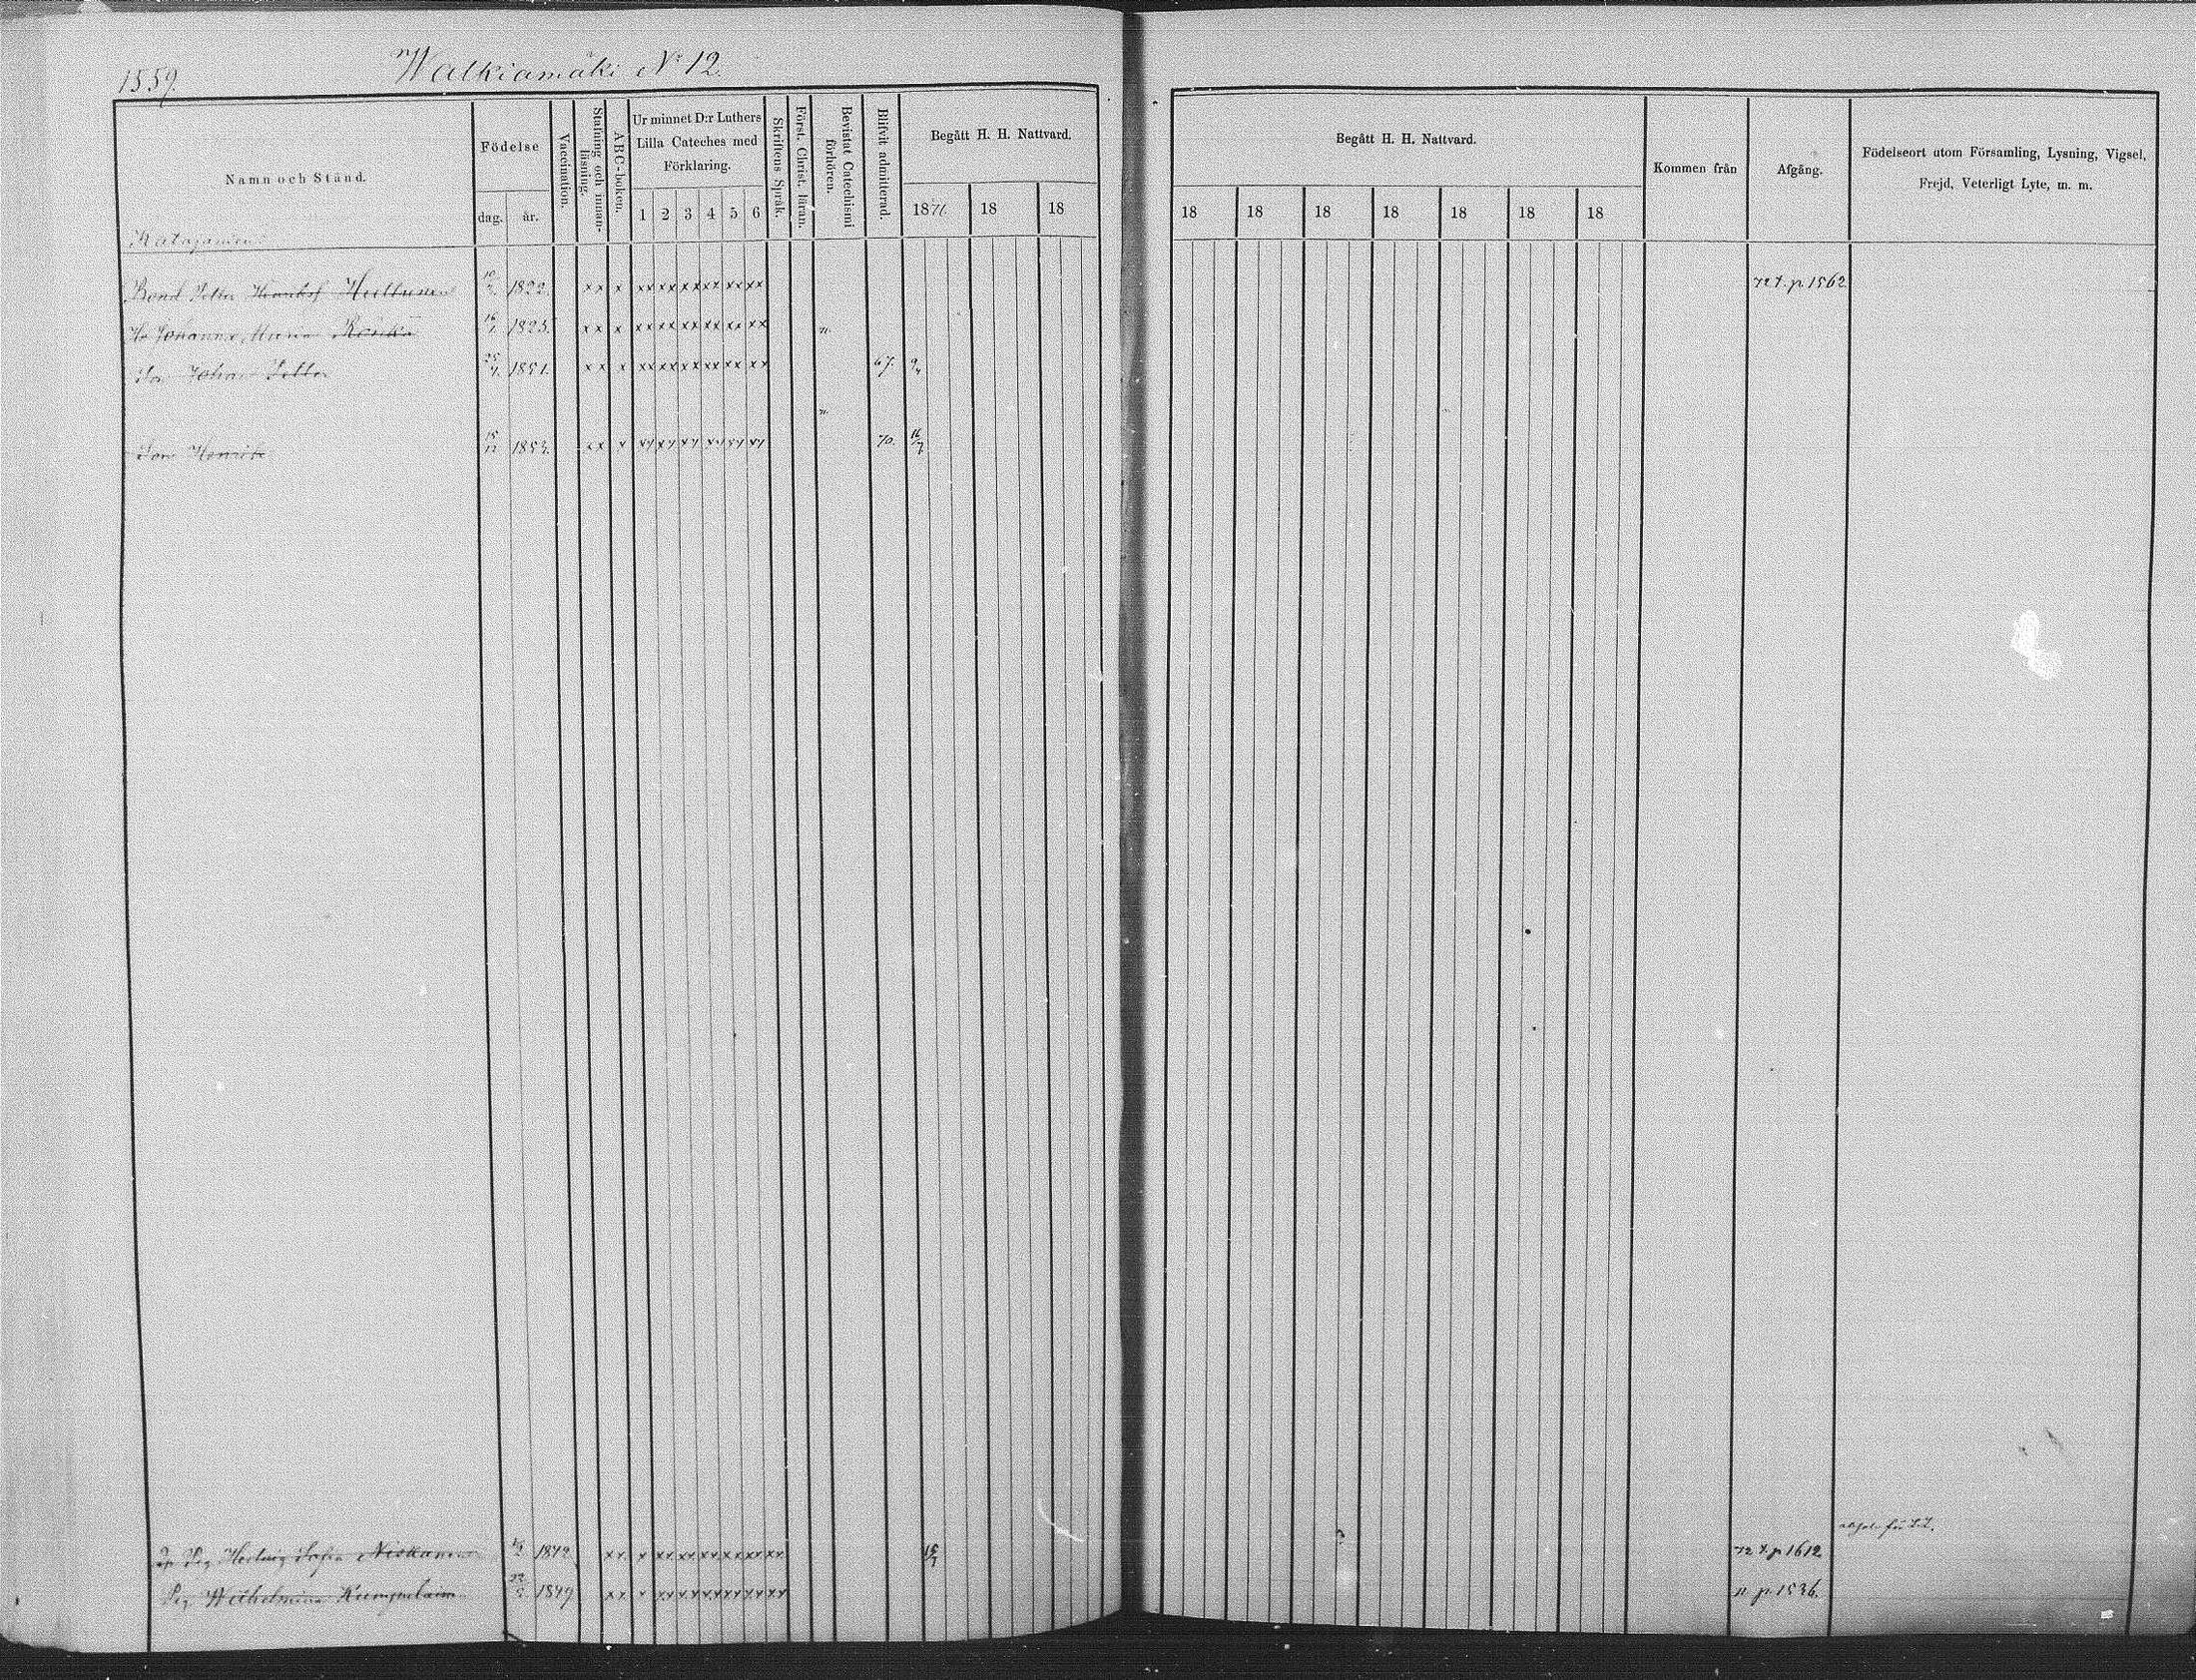 1559.
Walkiamäki No 12.
Namn och Stånd.
Födelse
dag.
år.
Vaccination.
Stafning och innanläsning.
ABC-boken.
Ur minnet D:r Luthers
Lilla Cateches med
Förklaring.
1 2 3 4 5 6
Skriftens Språk.
Först. Christ. läran.
Bevistat Catechismi förhören.
Blifvit admitterad.
Begått H. H. Nattvard.
1871 18 18
Begått H. H. Nattvard.
18 18 18 18 18 18 18
Kommen från
Afgång.
Födelseort utom Församling, Lysning, Vigsel,
Frejd, Veterligt Lyte, m. m.
Bond Petter Huttunen 1822. xx x xx xx xx xx xx xx 72 t. p. 1562
Hu Johanna Maria 1823. xx x xx xx xx xx xx xx
Son Johan Petter 1851. xx x xx xx xx xx xx xx 67. 9/4
Son Henrik 15/12 1853. xx x xx xx xx xx xx xx 70. 16/7
Pig Hedvig Sofia Niskanen 1842 xx x xx xx xx xx xx xx 72 t. p 1612
Pig Wilhelmina Kumpulain 1849 xx x xx xx xx xx xx xx n p. 1536.